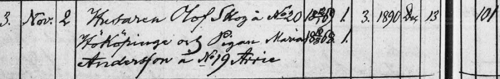 3. Nov. 2 Husaren Olof Skog å No 20 1. 3. 1890 Dec. 13 101
Hököpinge och Pigan Maria 1.
Andersson å No 19 Arrie